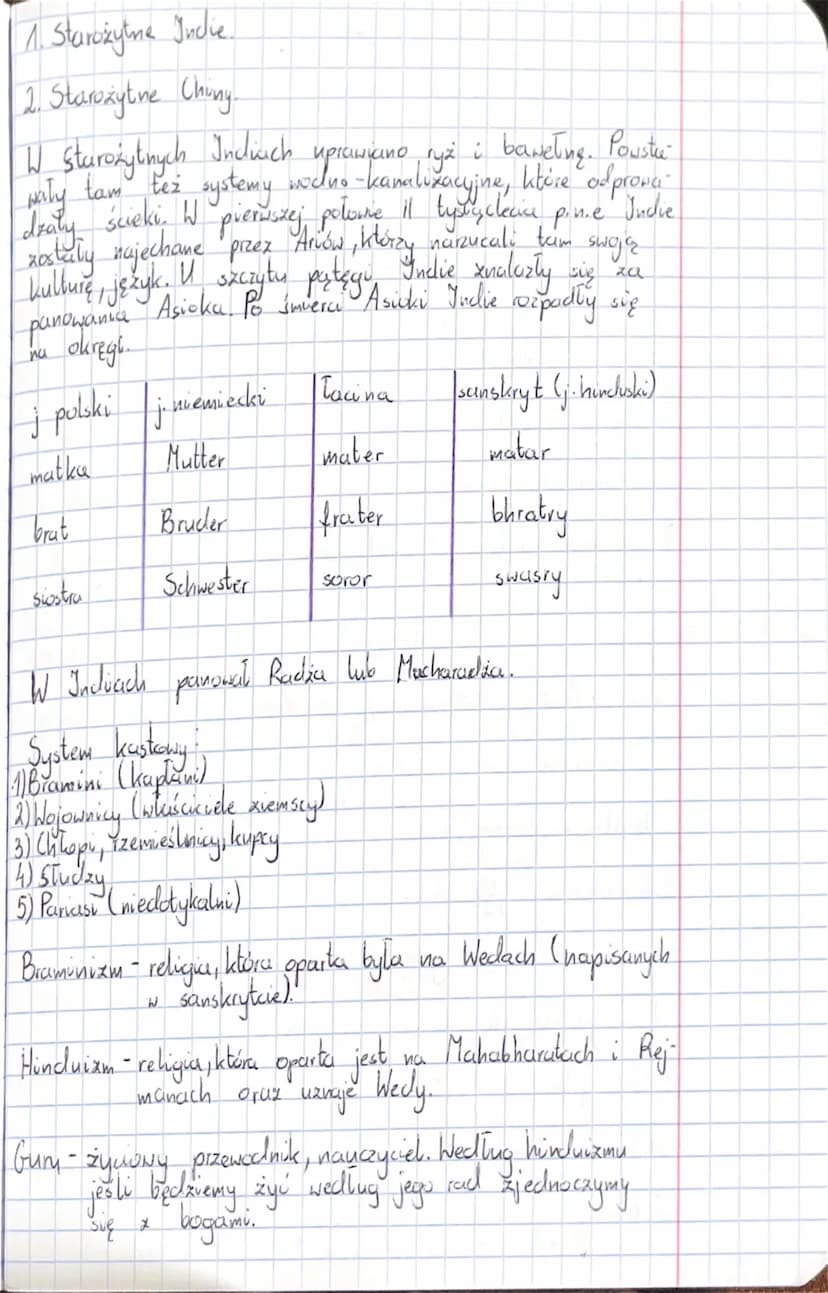 1. Starożytne Indie.
2. Starożytne Chiny.
W starożytnych Indiach uprawiano ryż i bawełnę. Powsta-
wały tam też systemy wodno-kanalizacyjne, które odprowa-
dzały ścieki. W pierwszej połowie II tysiąclecia p.n.e Indie
zostały najechane przez Ariów, którzy narzucali tam swoją
kulturę, język. U szczytu potęgi Indie znalazły się za
panowania Asioka. Po śmierci Asioki Indie rozpadły się
na okręgi.
j polski j. niemiecki łacina sanskryt (j. hinduski)
matka Mutter mater matar
brat Bruder frater bhratry
siostra Schwester soror swasry
W Indiach panował Radża lub Macharadża.
System kastowy:
1) Bramini (kapłani)
2) Wojownicy (właściciele ziemscy)
3) Chłopi, rzemieślnicy, kupcy
4) Słudzy
5) Pariasi (niedotykalni)
Braminizm - religia, która oparta była na Wedach (napisanych
w sanskrytcie).
Hinduizm - religia, która oparta jest na Mahabharatach i Rej-
manach oraz uznaje Wedy.
Guru - życiowy przewodnik, nauczyciel. Według hinduizmu
jeśli będziemy żyć według jego rad zjednoczymy
się z bogami.